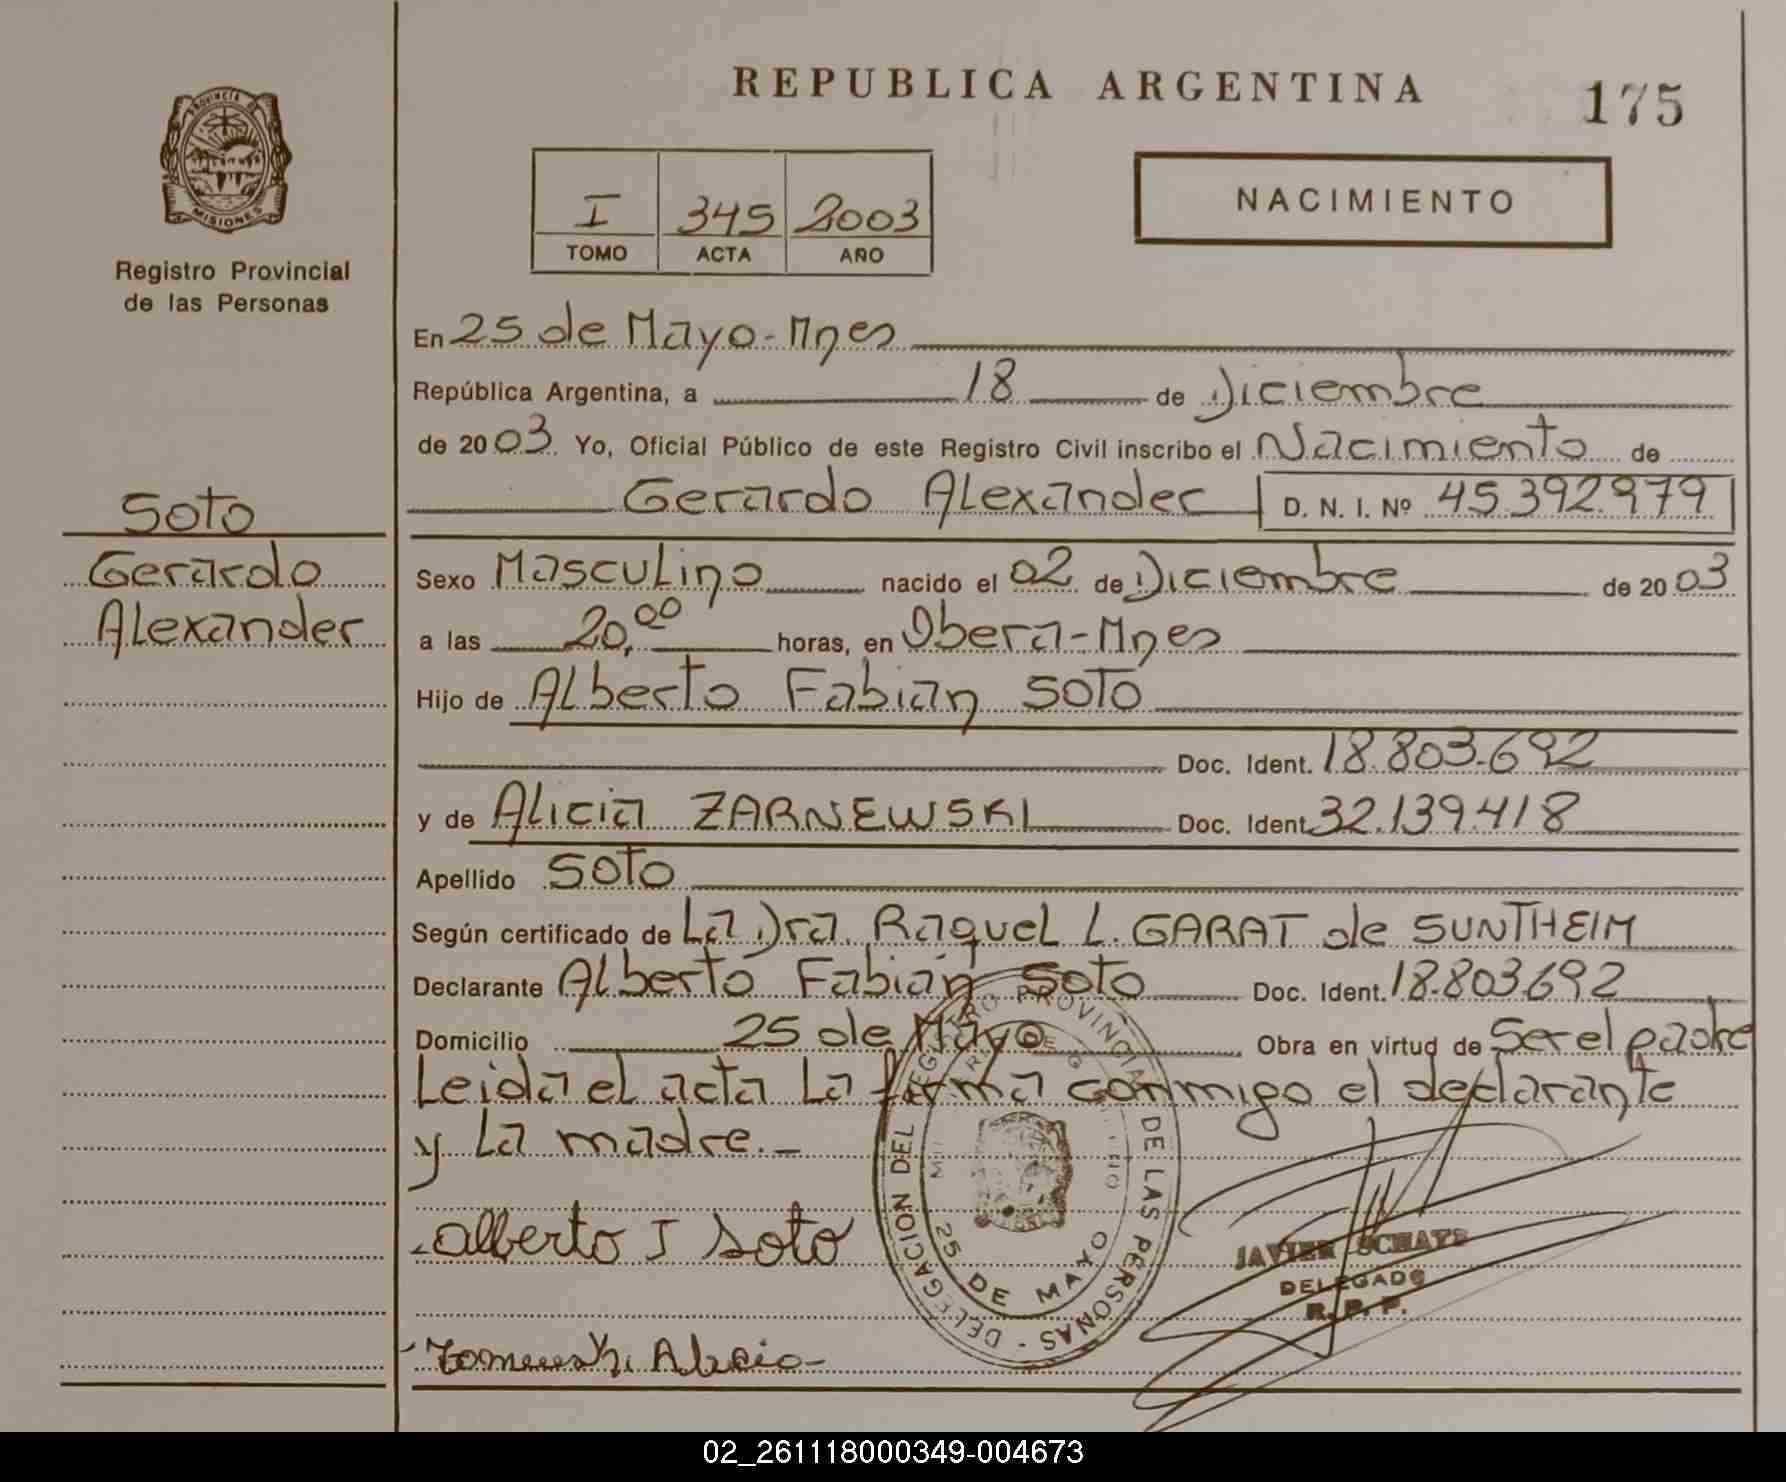 REPUBLICA ARGENTINA
175
PROVINCIA DE
MISIONES
Registro Provincial
de las Personas
I 345 2003
TOMO ACTA AÑO
NACIMIENTO
En 25 de Mayo-Mnes
República Argentina, a 18 de Diciembre
de 2003 Yo, Oficial Público de este Registro Civil inscribo el Nacimiento de
Gerardo Alexander D. N. I. Nº 45.392.979
Soto
Gerardo
Alexander
Sexo Masculino nacido el 02 de Diciembre de 2003
a las 20,00 horas, en Obera-Mnes
Hijo de Alberto Fabian Soto
Doc. Ident. 18.803.692
y de Alicia ZARNEWSKI Doc. Ident. 32.139.418
Apellido Soto
Según certificado de La Dra. Raquel L. GARAT de SUNTHEIM
Declarante Alberto Fabian Soto Doc. Ident. 18.803.692
Domicilio 25 de Mayo Obra en virtud de Ser el padre
Leida el acta La firma conmigo el declarante
y La madre.-
DELEGACION DEL REGISTRO PROVINCIAL DE LAS PERSONAS -
25 DE MAYO
Alberto J Soto
JAVIER SCHATZ
DELEGADO
R. P. P.
Alicia
02_261118000349-004673